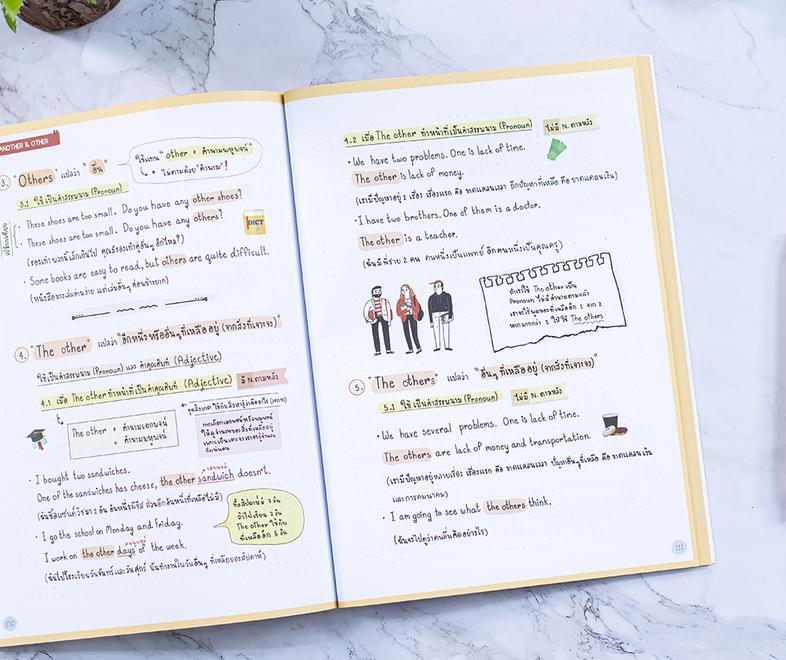 ANOTHER & OTHER
3. "Others" แปลว่า "อื่น"
ใช้แทน "other + คำนามพหูพจน์"
ไม่ตามด้วย "คำนาม" !
3.1 ใช้เป็นคำสรรพนาม (Pronoun)
These shoes are too small. Do you have any other shoes?
These shoes are too small. Do you have any others?
(รองเท้าพวกนี้เล็กเกินไป คุณมีรองเท้าคู่อื่นๆ อีกไหม?)
DICT
• Some books are easy to read, but others are quite difficult.
(หนังสือบางเล่มอ่านง่าย แต่เล่มอื่นๆ ค่อนข้างยาก)
4. "The other" แปลว่า "อีกหนึ่งหรืออื่นๆ ที่เหลืออยู่ (จากสิ่งที่เจาะจง)"
ใช้เป็นคำสรรพนาม (Pronoun) และ คำคุณศัพท์ (Adjective)
4.1 เมื่อ The other ทำหน้าที่เป็นคำคุณศัพท์ (Adjective)
มี N. ตามหลัง
The other + คำนามเอกพจน์
+ คำนามพหูพจน์
• I bought two sandwiches.
เอกพจน์
One of the sandwiches has cheese, the other sandwich doesn't.
(ฉันซื้อแซนด์วิชมา 2 อัน อันหนึ่งมีชีส ส่วนอีกอันหนึ่งที่เหลือไม่มี)
• I go the school on Monday and Friday.
พหูพจน์
I work on the other days of the week.
(ฉันไปโรงเรียนวันจันทร์และวันศุกร์ ฉันทำงานในวันอื่นๆ ที่เหลือของสัปดาห์)
The other ใช้กับ
ที่เหลืออีก 5 วัน
110
4.2 เมื่อ The other ทำหน้าที่เป็นคำสรรพนาม (Pronoun)
ไม่มี N. ตามหลัง
• We have two problems. One is lack of time.
The other is lack of money.
(เรามีปัญหาอยู่ 2 เรื่อง เรื่องแรก คือ ขาดแคลนเวลา อีกปัญหาที่เหลือ คือ ขาดแคลนเงิน)
• I have two brothers. One of them is a doctor.
The other is a teacher.
(ฉันมีพี่ชาย 2 คน คนหนึ่งเป็นแพทย์ อีกคนหนึ่งเป็นคุณครู)
ถ้าเราใช้ The other เป็น
Pronoun ไม่มีคำนามตามหลัง
หากมากกว่า 1 ให้ใช้ The others
5. "The others" แปลว่า "อื่นๆ ที่เหลืออยู่ (จากสิ่งที่เจาะจง)"
5.1 ใช้เป็นคำสรรพนาม (Pronoun)
ไม่มี N. ตามหลัง
• We have several problems. One is lack of time.
The others are lack of money and transportation.
(เรามีปัญหาอยู่หลายเรื่อง เรื่องแรก คือ ขาดแคลนเวลา ปัญหาอื่นๆ ที่เหลือ คือ ขาดแคลนเงิน
และการคมนาคม)
• I am going to see what the others think.
(ฉันจะไปดูว่าคนอื่นคิดอย่างไร)
111